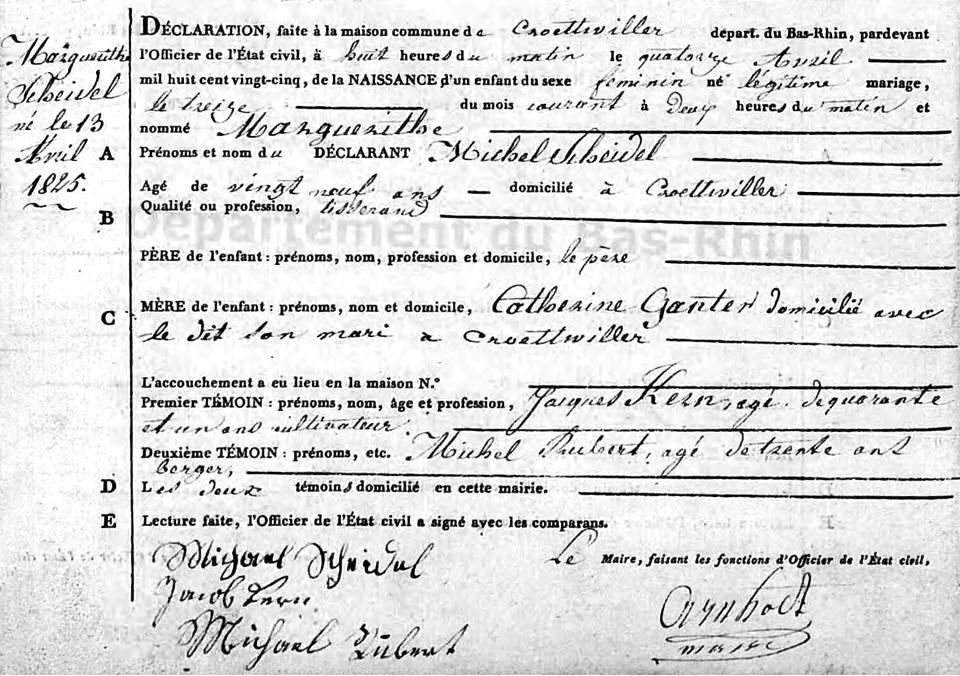 Marguerithe
Scheidel
né le 13
Avril
1825.
DÉCLARATION, faite à la maison commune de Croettwiller départ. du Bas-Rhin, pardevant
l'Officier de l'État civil, à huit heures du matin le quatorze Avril
mil huit cent vingt-cinq, de la NAISSANCE d'un enfant du sexe féminin né légitime mariage,
le treize du mois courant à deux heures du matin et
nommé Marguerithe
A Prénoms et nom du DÉCLARANT Michel Scheidel
Agé de vingt neuf ans — domicilié à Croettwiller
B Qualité ou profession, tisserand
Département du Bas-Rhin
PÈRE de l'enfant : prénoms, nom, profession et domicile, le père
C MÈRE de l'enfant : prénoms, nom et domicile, Catherine Ganter domicilié avec
le dit son mari a Croettwiller
L'accouchement a eu lieu en la maison N.°
Premier TÉMOIN : prénoms, nom, âge et profession, Jacques Kern, agé de quarante
et un ans cultivateur
Deuxième TÉMOIN : prénoms, etc. Michel Rubert, agé de trente ans
berger,
D Les deux témoins domicilié en cette mairie.
E Lecture faite, l'Officier de l'État civil a signé avec les comparans.
Michael Scheidel Le Maire, faisant les fonctions d'Officier de l'État civil,
Jacob Kern
Michael Rubert
Arnholt
maire